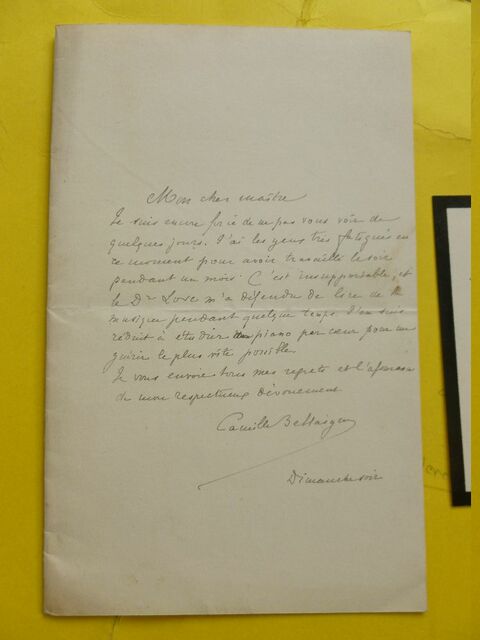 Mon cher maître
Je suis encore forcé de ne pas vous voir de
quelques jours. J'ai les yeux très fatigués en
ce moment pour avoir travaillé le soir
pendant un mois. C'est insupportable, et
le Dr m'a défendu de lire de la
musique pendant quelque temps. J'en suis
réduit à étudier mon piano par cœur pour me
guérir le plus vite possible.
Je vous envoie tous mes regrets et l'
de mon respectueux dévouement
Camille Bellaigue
Dimanche soir